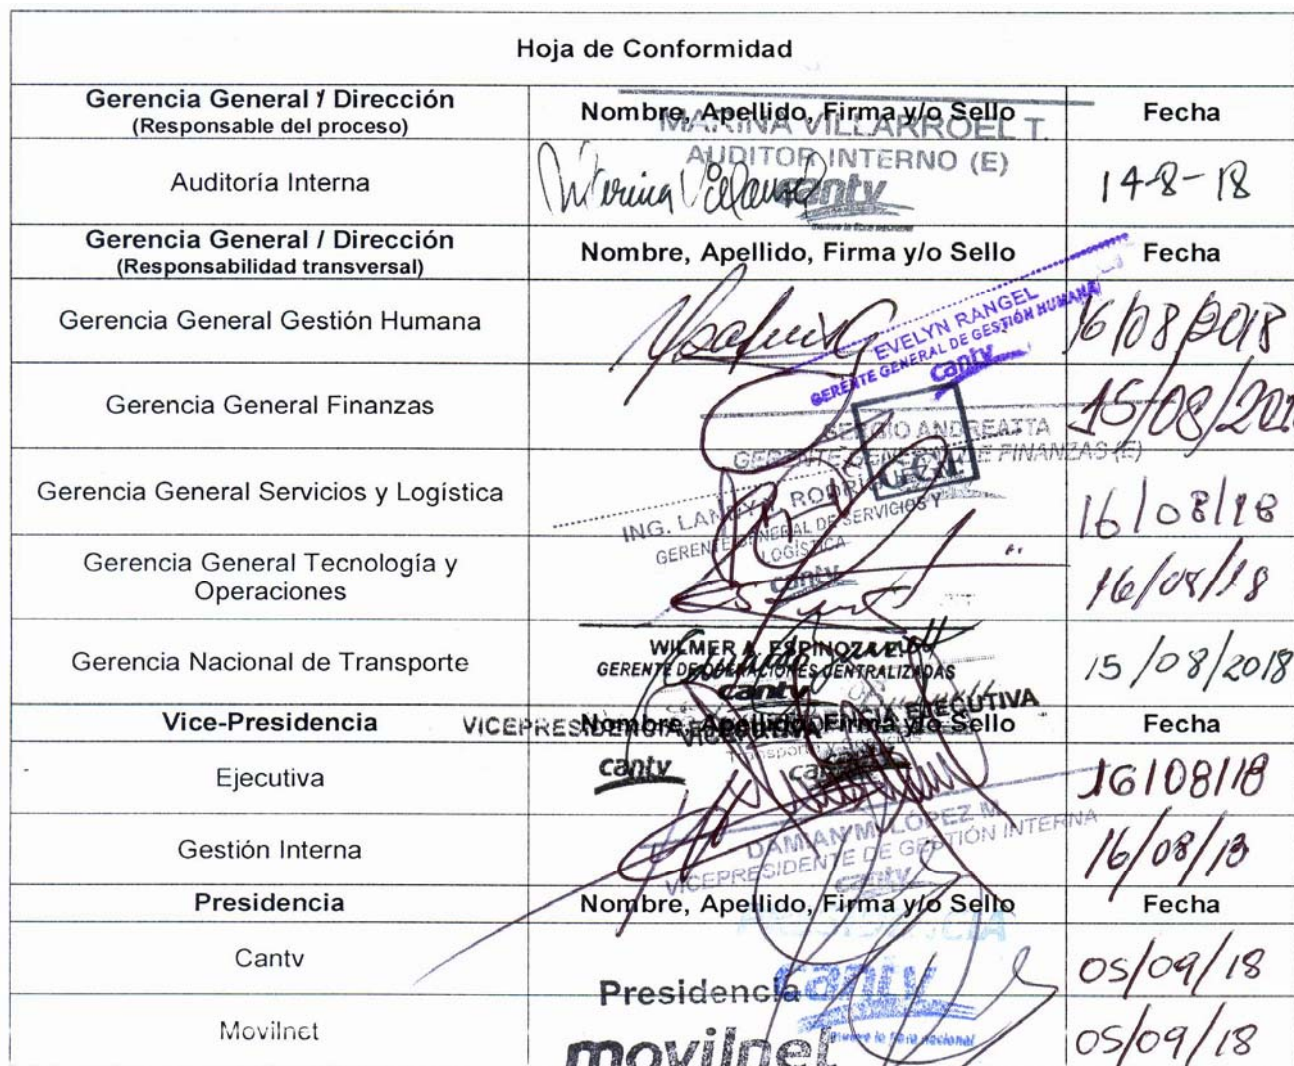 Hoja de Conformidad
Gerencia General / Dirección
(Responsable del proceso)
Nombre, Apellido, Firma y/o Sello
Fecha
MARINA VILLARROEL T.
AUDITOR INTERNO (E)
cantv
Auditoría Interna
14-8-18
Gerencia General / Dirección
(Responsabilidad transversal)
Nombre, Apellido, Firma y/o Sello
Fecha
Gerencia General Gestión Humana
EVELYN RANGEL
GERENTE GENERAL DE GESTIÓN HUMANA
cantv
16/08/2018
Gerencia General Finanzas
SERGIO ANDREATTA
GERENTE GENERAL DE FINANZAS (E)
15/08/201
Gerencia General Servicios y Logística
ING. LANDY
GERENTE GENERAL DE SERVICIOS Y
LOGÍSTICA
cantv
16/08/18
Gerencia General Tecnología y
Operaciones
16/08/18
Gerencia Nacional de Transporte
WILMER A. ESPINOZA
GERENTE DE OPERACIONES CENTRALIZADAS
cantv
15/08/2018
Vice-Presidencia
Nombre, Apellido, Firma y/o Sello
Fecha
VICEPRESIDENCIA EJECUTIVA
cantv
Ejecutiva
16/08/18
Gestión Interna
DAMIAN M. LÓPEZ M.
VICEPRESIDENTE DE GESTIÓN INTERNA
cantv
16/08/18
Presidencia
Nombre, Apellido, Firma y/o Sello
Fecha
PRESIDENCIA
cantv
Cantv
05/09/18
Presidencia
movilnet
Movilnet
05/09/18